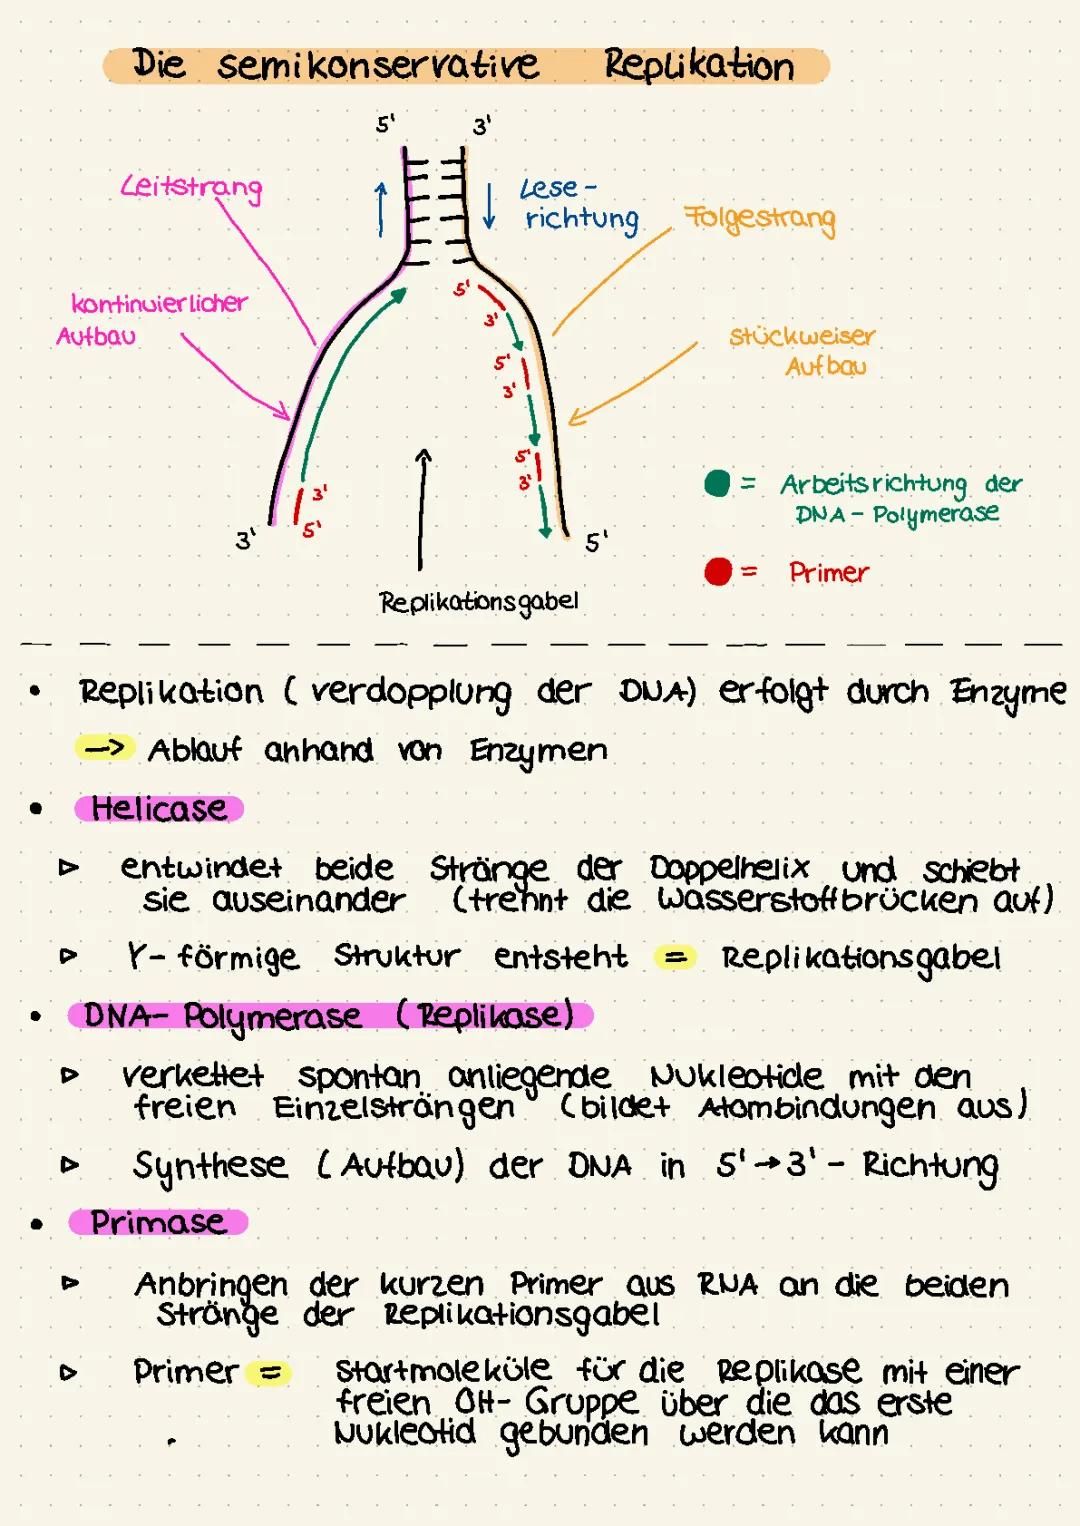 Die semikonservative Replikation
5' 3'
Leitstrang
Lese-
richtung
Folgestrang
kontinuierlicher
Aufbau
5'
3'
stückweiser
Aufbau
5'
3'
5'
3'
3'
5'
3'
5'
= Arbeitsrichtung der
DNA-Polymerase
= Primer
Replikationsgabel
• Replikation (verdopplung der DNA) erfolgt durch Enzyme
-> Ablauf anhand von Enzymen
• Helicase
▷ entwindet beide Stränge der Doppelhelix und schiebt
sie auseinander (trennt die Wasserstoffbrücken auf)
▷ Y-förmige Struktur entsteht = Replikationsgabel
• DNA-Polymerase (Replikase)
▷ verkettet spontan anliegende Nukleotide mit den
freien Einzelsträngen (bildet Atombindungen aus)
▷ Synthese (Aufbau) der DNA in 5'→3'-Richtung
• Primase
▷ Anbringen der kurzen Primer aus RNA an die beiden
Stränge der Replikationsgabel
▷ Primer = Startmoleküle für die Replikase mit einer
freien OH-Gruppe über die das erste
Nukleotid gebunden werden kann